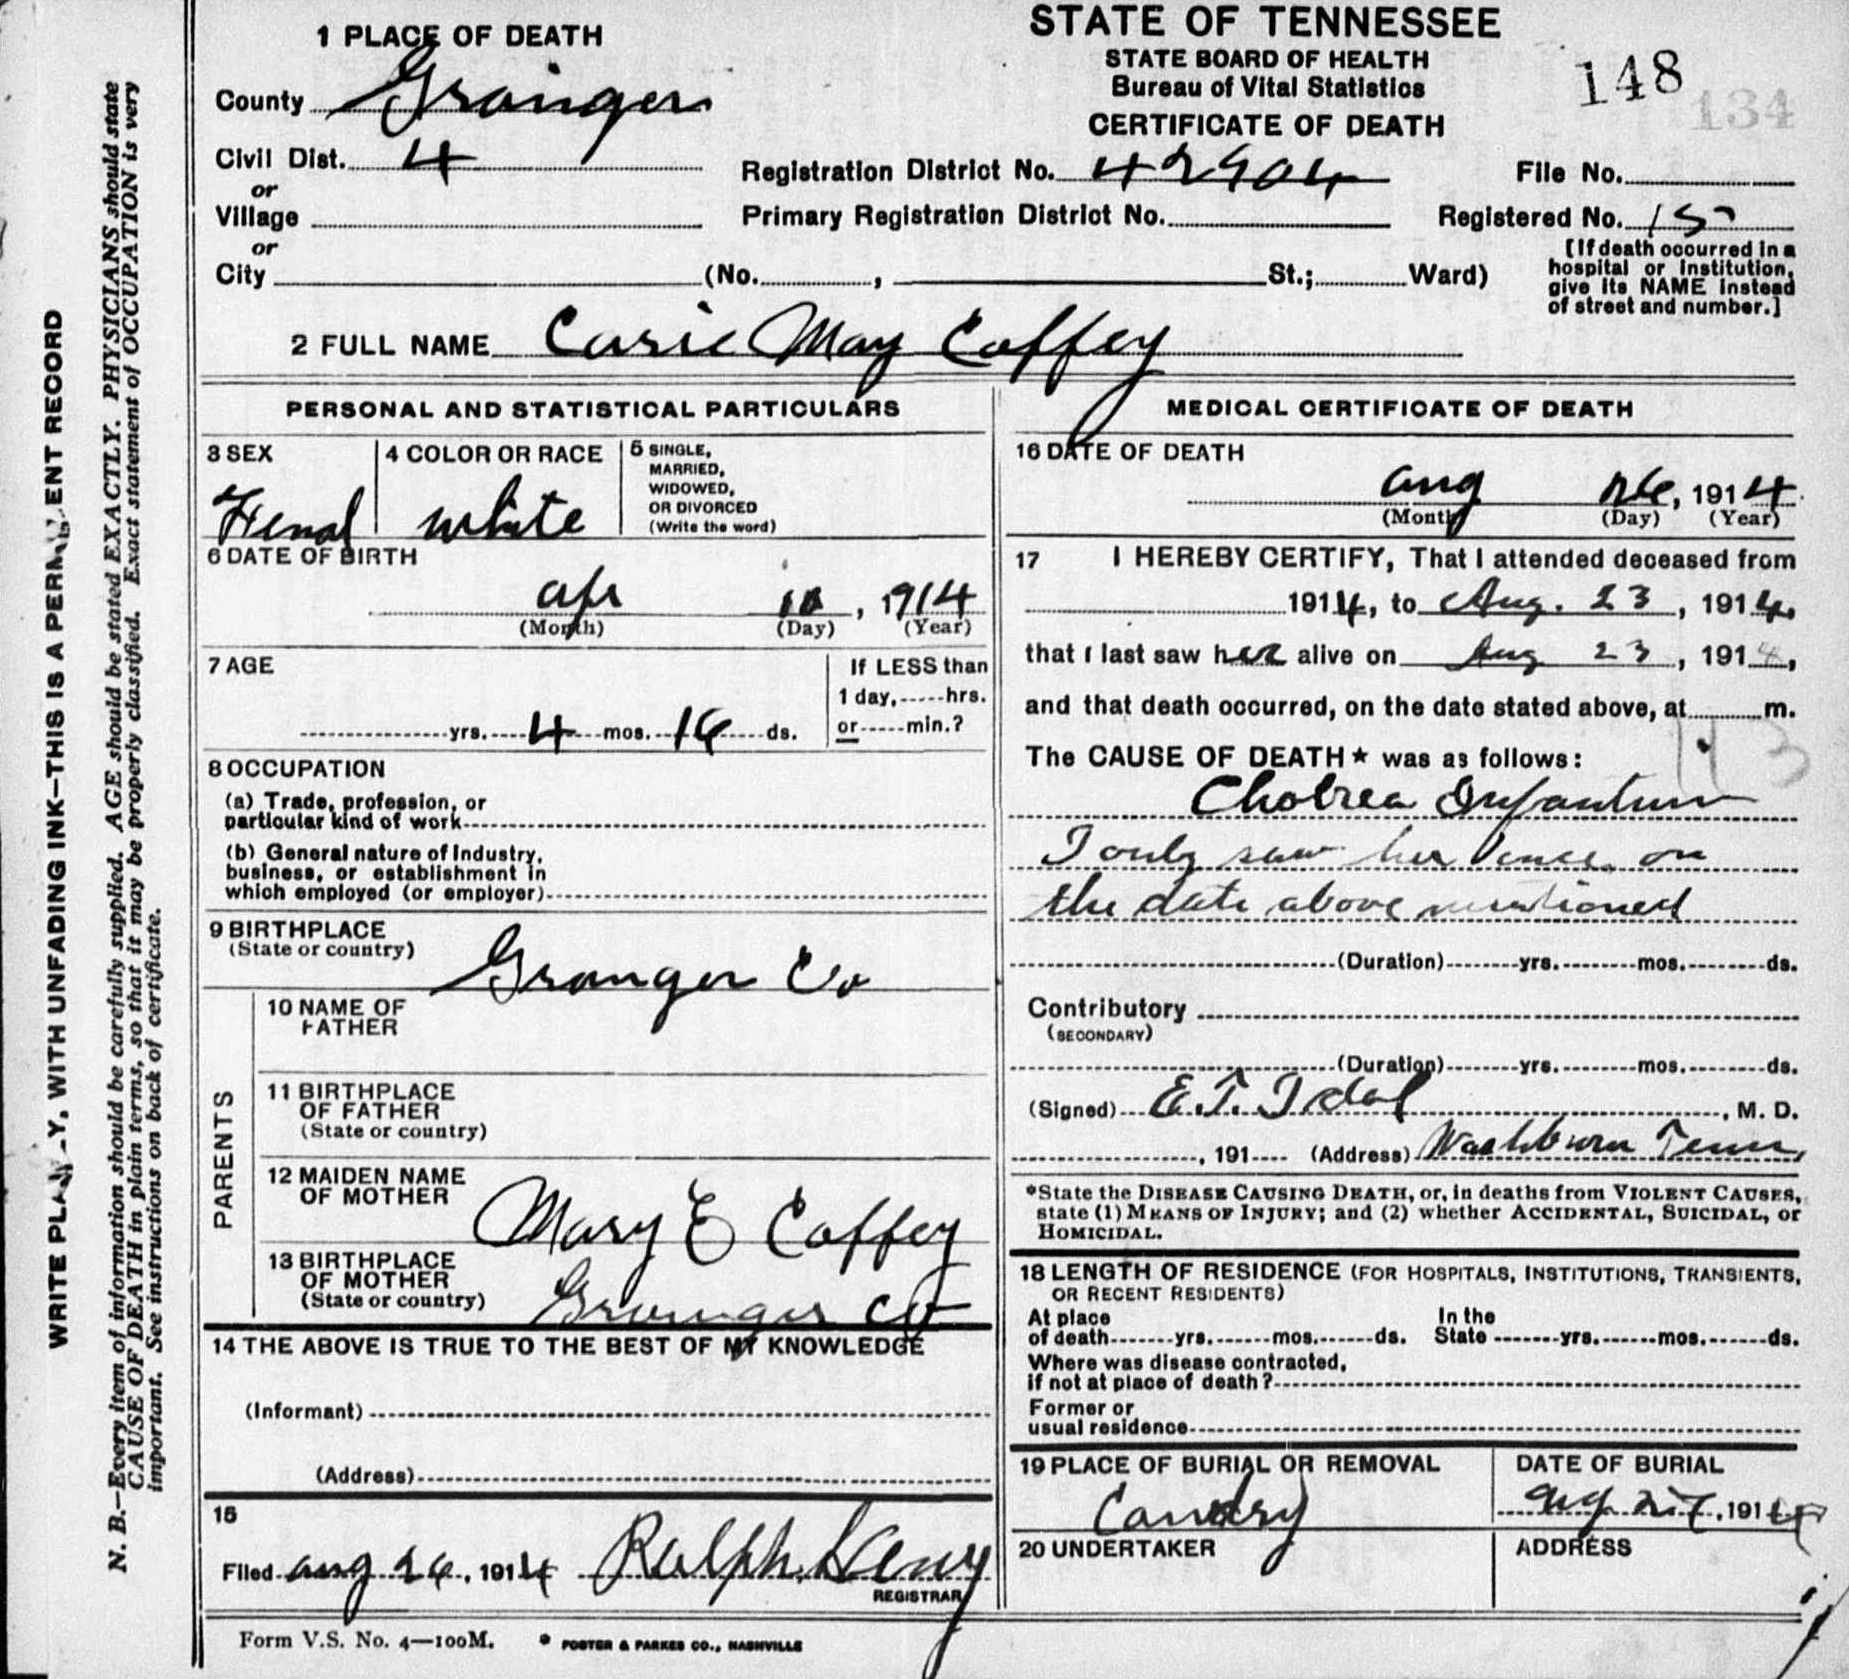 1 PLACE OF DEATH
County Grainger
Civil Dist. 4
or
Village
or
City (No. , St.; Ward)
STATE OF TENNESSEE
STATE BOARD OF HEALTH
Bureau of Vital Statistics
CERTIFICATE OF DEATH
148
134
Registration District No. 42904 File No.
Primary Registration District No. Registered No.
[If death occurred in a
hospital or institution,
give its NAME instead
of street and number.]
2 FULL NAME Carie May Coffey
PERSONAL AND STATISTICAL PARTICULARS
3 SEX
Femal
4 COLOR OR RACE
White
5 SINGLE,
MARRIED,
WIDOWED,
OR DIVORCED
(Write the word)
6 DATE OF BIRTH
apr 10, 1914
(Month) (Day) (Year)
7 AGE
yrs. 4 mos. 16 ds.
If LESS than
1 day, hrs.
or min.?
8 OCCUPATION
(a) Trade, profession, or
particular kind of work
(b) General nature of Industry,
business, or establishment in
which employed (or employer)
9 BIRTHPLACE
(State or country)
Granger Co
PARENTS
10 NAME OF
FATHER
11 BIRTHPLACE
OF FATHER
(State or country)
12 MAIDEN NAME
OF MOTHER
Mary E Coffey
13 BIRTHPLACE
OF MOTHER
(State or country)
Grainger Co
14 THE ABOVE IS TRUE TO THE BEST OF MY KNOWLEDGE
(Informant)
(Address)
15
Filed aug 26, 1914 Ralph
REGISTRAR
Form V.S. No. 4—100M. FOSTER & PARKES CO., NASHVILLE
MEDICAL CERTIFICATE OF DEATH
16 DATE OF DEATH
aug 26, 1914
(Month) (Day) (Year)
17 I HEREBY CERTIFY, That I attended deceased from
1914, to Aug. 23, 1914,
that I last saw her alive on Aug 23, 1914,
and that death occurred, on the date stated above, at m.
113
The CAUSE OF DEATH* was as follows:
Cholrea Infantum
I only saw her once on
the date above mentioned
(Duration) yrs. mos. ds.
Contributory
(SECONDARY)
(Duration) yrs. mos. ds.
(Signed) E.T. Idol, M. D.
, 191 (Address) Washburn Tenn,
*State the DISEASE CAUSING DEATH, or, in deaths from VIOLENT CAUSES,
state (1) MEANS OF INJURY; and (2) whether ACCIDENTAL, SUICIDAL, or
HOMICIDAL.
18 LENGTH OF RESIDENCE (FOR HOSPITALS, INSTITUTIONS, TRANSIENTS,
OR RECENT RESIDENTS)
At place In the
of death yrs. mos. ds. State yrs. mos. ds.
Where was disease contracted,
if not at place of death?
Former or
usual residence
19 PLACE OF BURIAL OR REMOVAL
DATE OF BURIAL
aug 27, 1914
20 UNDERTAKER
ADDRESS
WRITE PLAINLY, WITH UNFADING INK—THIS IS A PERMANENT RECORD
N. B.—Every item of information should be carefully supplied. AGE should be stated EXACTLY. PHYSICIANS should state
CAUSE OF DEATH in plain terms, so that it may be properly classified. Exact statement of OCCUPATION is very
important. See instructions on back of certificate.